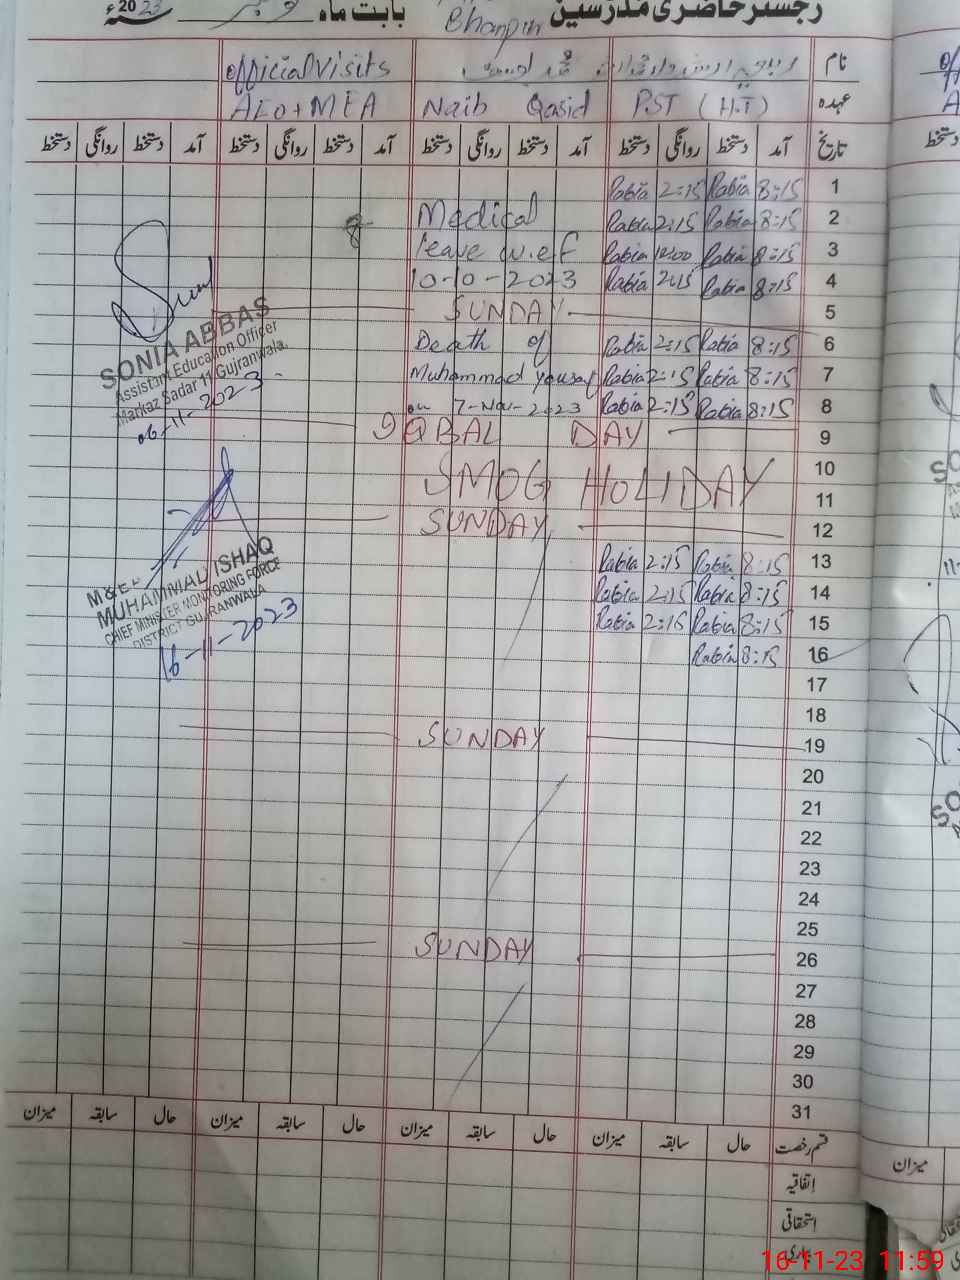 رجسٹر حاضری مدرسین بابت ماہ نومبر 2023ء
Bhanpur
نام official visits
عہدہ PST (H.T) Naib Qasid AEO + MEA
تاریخ آمد دستخط روانگی دستخط آمد دستخط روانگی دستخط آمد دستخط روانگی دستخط آمد دستخط روانگی دستخط
1 8:15 Rabia 2:15 Rabia
2 8:15 Rabia 2:15 Rabia Medical
3 8:15 Rabia 12:00 Rabia leave w.e.f
4 8:15 Rabia 2:15 Rabia 10-10-2023
5 SUNDAY
6 8:15 Rabia 2:15 Rabia Death of
7 8:15 Rabia 2:15 Rabia Muhammad yousaf
8 8:15 Rabia 2:15 Rabia on 7-Nov-2023
9 IQBAL DAY
10
SMOG HOLIDAY
11
12 SUNDAY
13 8:15 Rabia 2:15 Rabia
14 8:15 Rabia 2:15 Rabia
15 8:15 Rabia 2:15 Rabia
16 8:15 Rabia
17
18
19 SUNDAY
20
21
22
23
24
25
26 SUNDAY
27
28
29
30
31
SONIA ABBAS
Assistant Education Officer
Markaz Sadar 11 Gujranwala.
06-11-2023
M&E
MUHAMMAD ISHAQ
CHIEF MINISTER MONITORING FORCE
DISTRICT GUJRANWALA
16-11-2023
قسم رخصت حال سابقہ میزان حال سابقہ میزان حال سابقہ میزان حال سابقہ میزان
اتفاقیہ
استحقاقی
بیماری
میزان
16-11-23 11:59